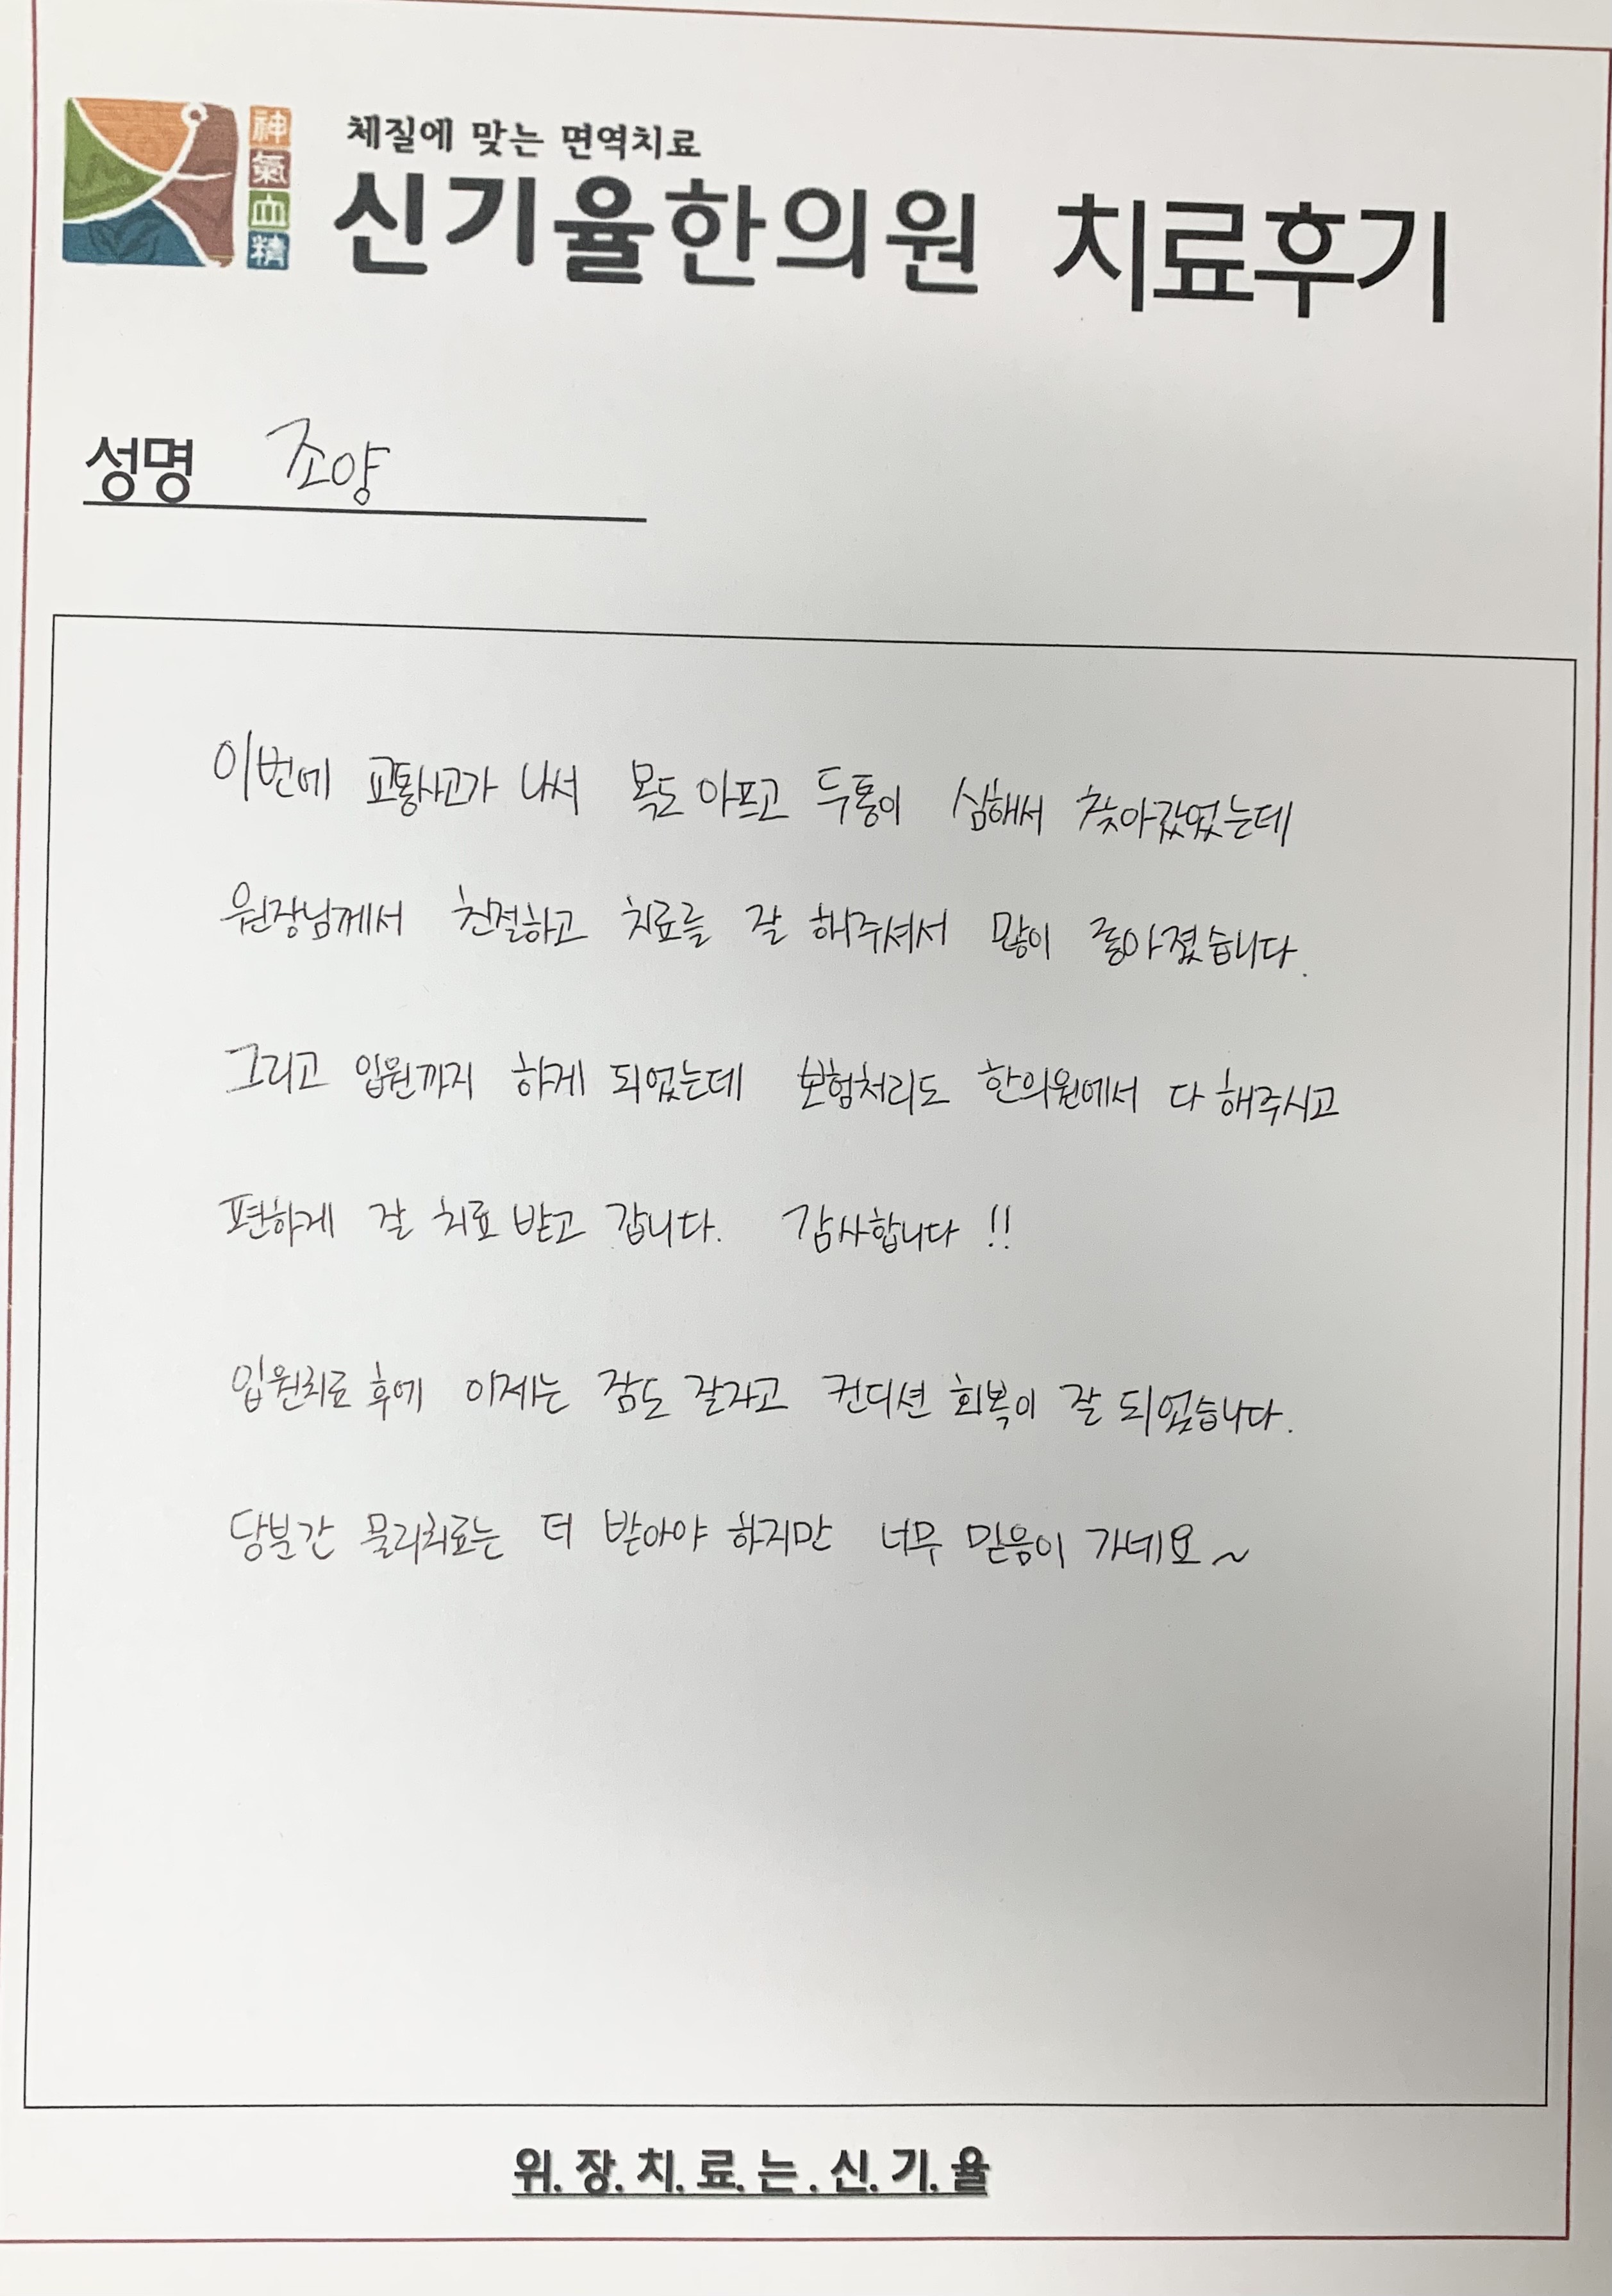 神
氣
血
精
체질에 맞는 면역치료
신기율한의원 치료후기
성명 조양
이번에 교통사고가 나서 목도 아프고 두통이 심해서 찾아갔었는데
원장님께서 친절하고 치료를 잘 해주셔서 많이 좋아졌습니다.
그리고 입원까지 하게 되었는데 보험처리도 한의원에서 다 해주시고
편하게 잘 치료 받고 갑니다. 감사합니다 !!
입원치료 후에 이제는 잠도 잘자고 컨디션 회복이 잘 되었습니다.
당분간 물리치료는 더 받아야 하지만 너무 믿음이 가네요~
위.장.치.료.는.신.기.율